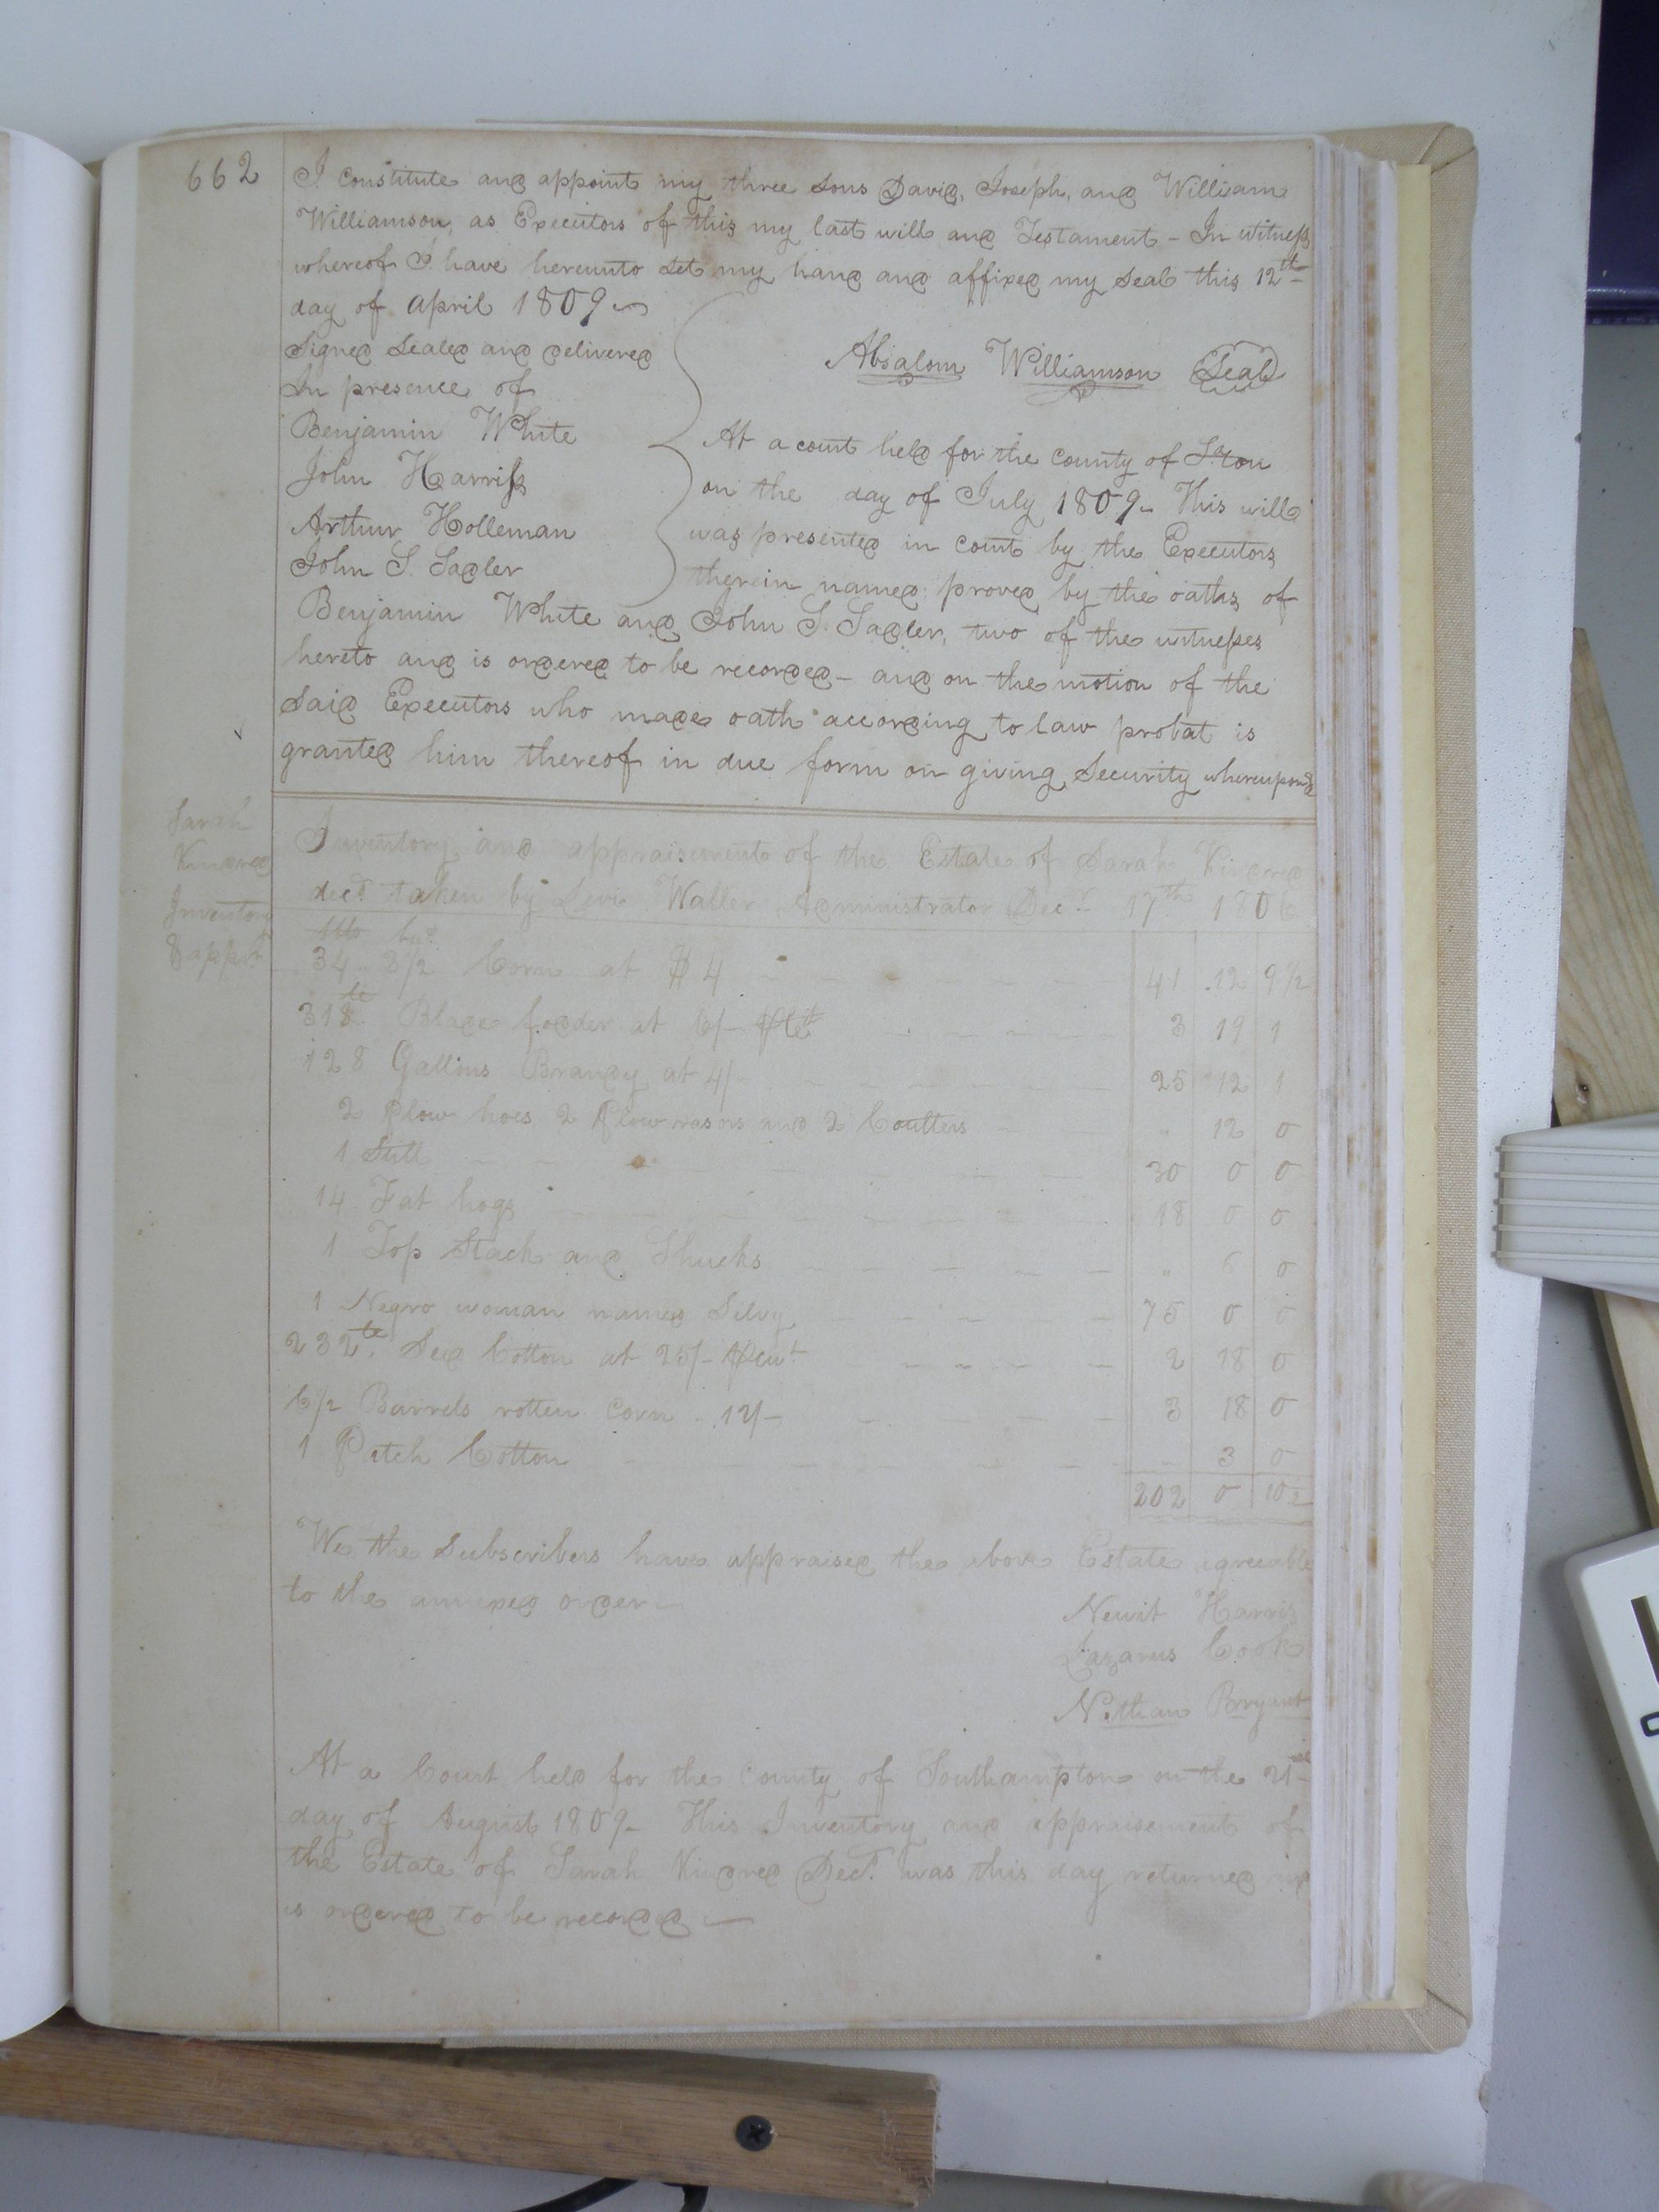 662
I constitute and appoint my three sons David, Joseph, and William
Williamson, as Executors of this my last will and Testament - In witness
whereof I have hereunto set my hand and affixed my seal this 12th
day of April 1809
Signed Sealed and delivered
In presence of
Absalom Williamson Seal
Benjamin White
John Harriss
Arthur Holleman
John S. Sadler
At a court held for the county of S.ton
on the day of July 1809 - This will
was presented in court by the Executors
therein named proved by the oaths of
Benjamin White and John S. Sadler, two of the witnesses
hereto and is ordered to be recorded - and on the motion of the
said Executors who made oath according to law probat is
granted him thereof in due form on giving Security whereupon &
Sarah
Kindred
Inventory
& appt
Inventory and appraisement of the Estate of Sarah Kindred
decd taken by Levi Waller Administrator Decr 17th 1806
bbls bus
34 3/2 Corn at $4 41 .12 9 1/2
318 lb Blade fodder at 6/- 3 19 1
128 Gallons Brandy at 4/- 25 12 1
2 Plow hoes 2 Plow rasors and 2 Coulters " 12 0
1 Still 30 0 0
14 Fat hogs 18 0 0
1 Top Stack and Shucks " 6 0
1 Negro woman named Silvy 75 0 0
232 lb Seed Cotton at 25/- 2 18 0
6/2 Barrels rotten Corn - 12/- 3 18 0
1 Patch Cotton " 3 0
202 0 10 1/2
We the Subscribers have appraised the above Estate agreeable
to the annexed order
Newit Harris
Lazarus Cook
Nathan Bryant
At a Court held for the County of Southampton on the 21st
day of August 1809 - This Inventory and appraisement of
the Estate of Sarah Kindred Decd. was this day returned and
is ordered to be recorded